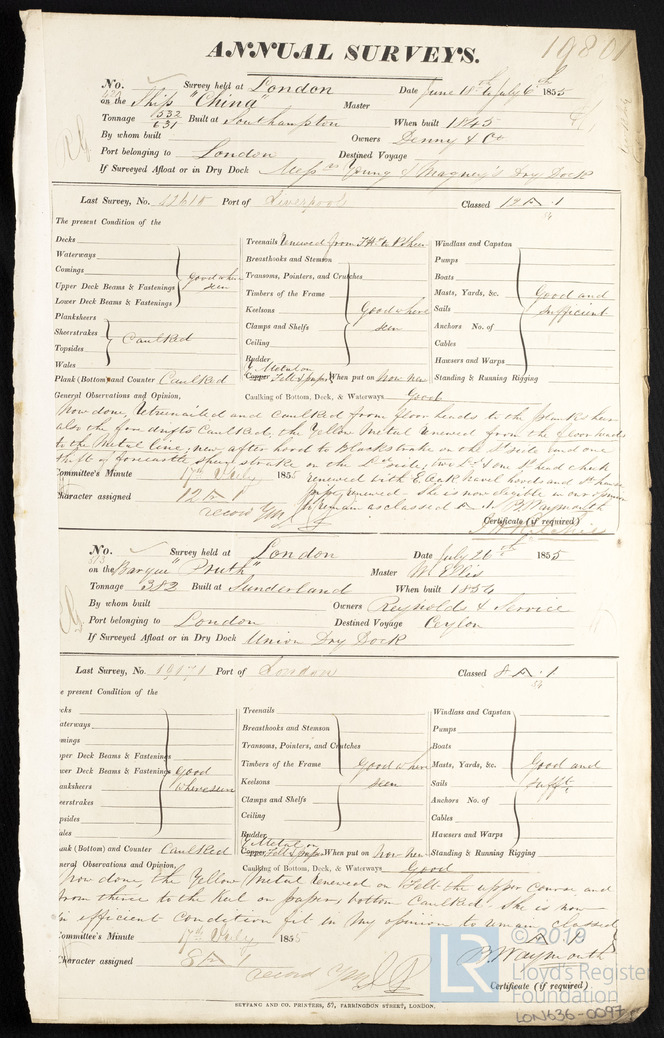 ANNUAL SURVEYS.
19801
No. Survey held at London Date June 18th to July 6th 1855
on the Ship "China" Master
Tonnage 532 631 Built at Southampton When built 1845
By whom built Owners Denny & Co
Port belonging to London Destined Voyage
If Surveyed Afloat or in Dry Dock Messrs Young & Magnay's Dry Dock
Last Survey, No. 12615 Port of Liverpool Classed 12 A 1
The present Condition of the
Decks
Waterways
Comings
Upper Deck Beams & Fastenings
Lower Deck Beams & Fastenings
good where seen
Planksheers
Sheerstrakes
Topsides
Wales
Caulked
Plank (Bottom) and Counter Caulked
Treenails renewed from
Breasthooks and Stemson
Transoms, Pointers, and Crutches
Timbers of the Frame
Keelsons
Clamps and Shelfs
Ceiling
Rudder
Good where seen
Y. Metal on
Copper, Felt & paper When put on now new
Caulking of Bottom, Deck, & Waterways Good
Windlass and Capstan
Pumps
Boats
Masts, Yards, &c.
Sails
Anchors No. of
Cables
Hawsers and Warps
Standing & Running Rigging
Good and sufficient
General Observations and Opinion,
Now done, Retreenailed and caulked from floor heads to the planksheer
also the fore caulked, the Yellow Metal renewed from the floor heads
to the Metal line, new after hood to Blackstrake on the side and one
shift of forecastle sheerstrake on the side, two
renewed with
renewed. She is now eligible in our opinion
to remain as classed A 1. B Waymouth
Committee's Minute 17th July 1855
Character assigned 12 A 1
record YM
Certificate (if required)
No. Survey held at London Date July 2 1855
on the Barque "Pruth" Master W. Ellis
Tonnage 382 Built at Sunderland When built 1854
By whom built Owners Reynolds & Service
Port belonging to London Destined Voyage Ceylon
If Surveyed Afloat or in Dry Dock Union Dry Dock
Last Survey, No. 19171 Port of London Classed 8 A 1
e present Condition of the
cks
aterways
mings
pper Deck Beams & Fastenings
wer Deck Beams & Fastenings
anksheers
eerstrakes
psides
ales
Good where seen
ank (Bottom) and Counter Caulked
Treenails
Breasthooks and Stemson
Transoms, Pointers, and Crutches
Timbers of the Frame
Keelsons
Clamps and Shelfs
Ceiling
Rudder
Good where seen
Y. Metal on
Copper, Felt & paper When put on now new
Caulking of Bottom, Deck, & Waterways Good
Windlass and Capstan
Pumps
Boats
Masts, Yards, &c.
Sails
Anchors No. of
Cables
Hawsers and Warps
Standing & Running Rigging
Good and sufft.
neral Observations and Opinion,
Now done, the Yellow Metal renewed on Felt the upper course and
from thence to the Keel on paper, bottom Caulked. She is now
in efficient condition fit in my opinion to remain classed
A 1
Committee's Minute 17th July 1855
B Waymouth
Character assigned 8 A 1
record YM
Certificate (if required)
BETFANG AND CO. PRINTERS, 57, FARRINGDON STREET, LONDON.
LR © 2019
Lloyd's Register
Foundation
LON636-0097